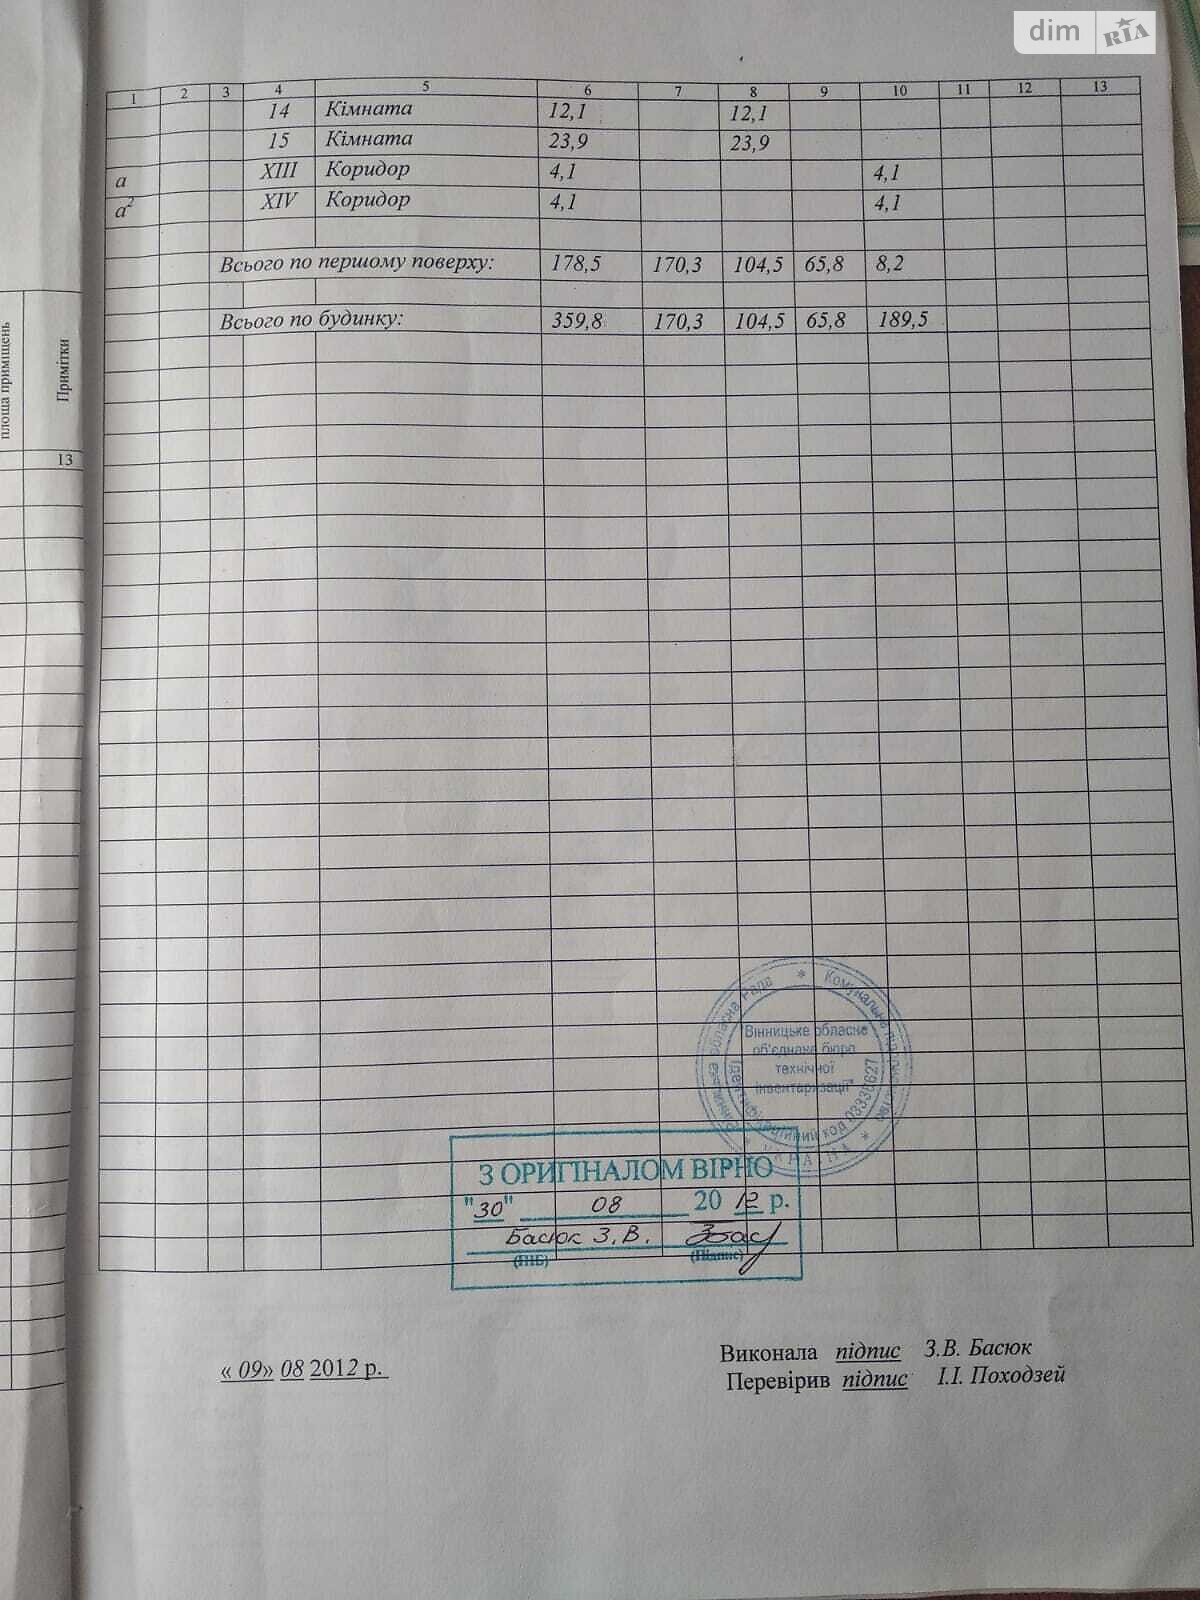 dim RIA
1 2 3 4 5 6 7 8 9 10 11 12 13
14 Кімната 12,1 12,1
15 Кімната 23,9 23,9
а XIII Коридор 4,1 4,1
а² XIV Коридор 4,1 4,1
Всього по першому поверху: 178,5 170,3 104,5 65,8 8,2
Всього по будинку: 359,8 170,3 104,5 65,8 189,5
площа приміщень
Примітки
13
обласна Рада * Комунальне підприємство
"Вінницьке обласне
об'єднане бюро
технічної
інвентаризації"
Ідентифікаційний код 03336627
* УКРАЇНА *
З ОРИГІНАЛОМ ВІРНО
"30" 08 2012 р.
Басюк З.В.
(ПІБ) (Підпис)
« 09» 08 2012 р.
Виконала підпис З.В. Басюк
Перевірив підпис І.І. Походзей